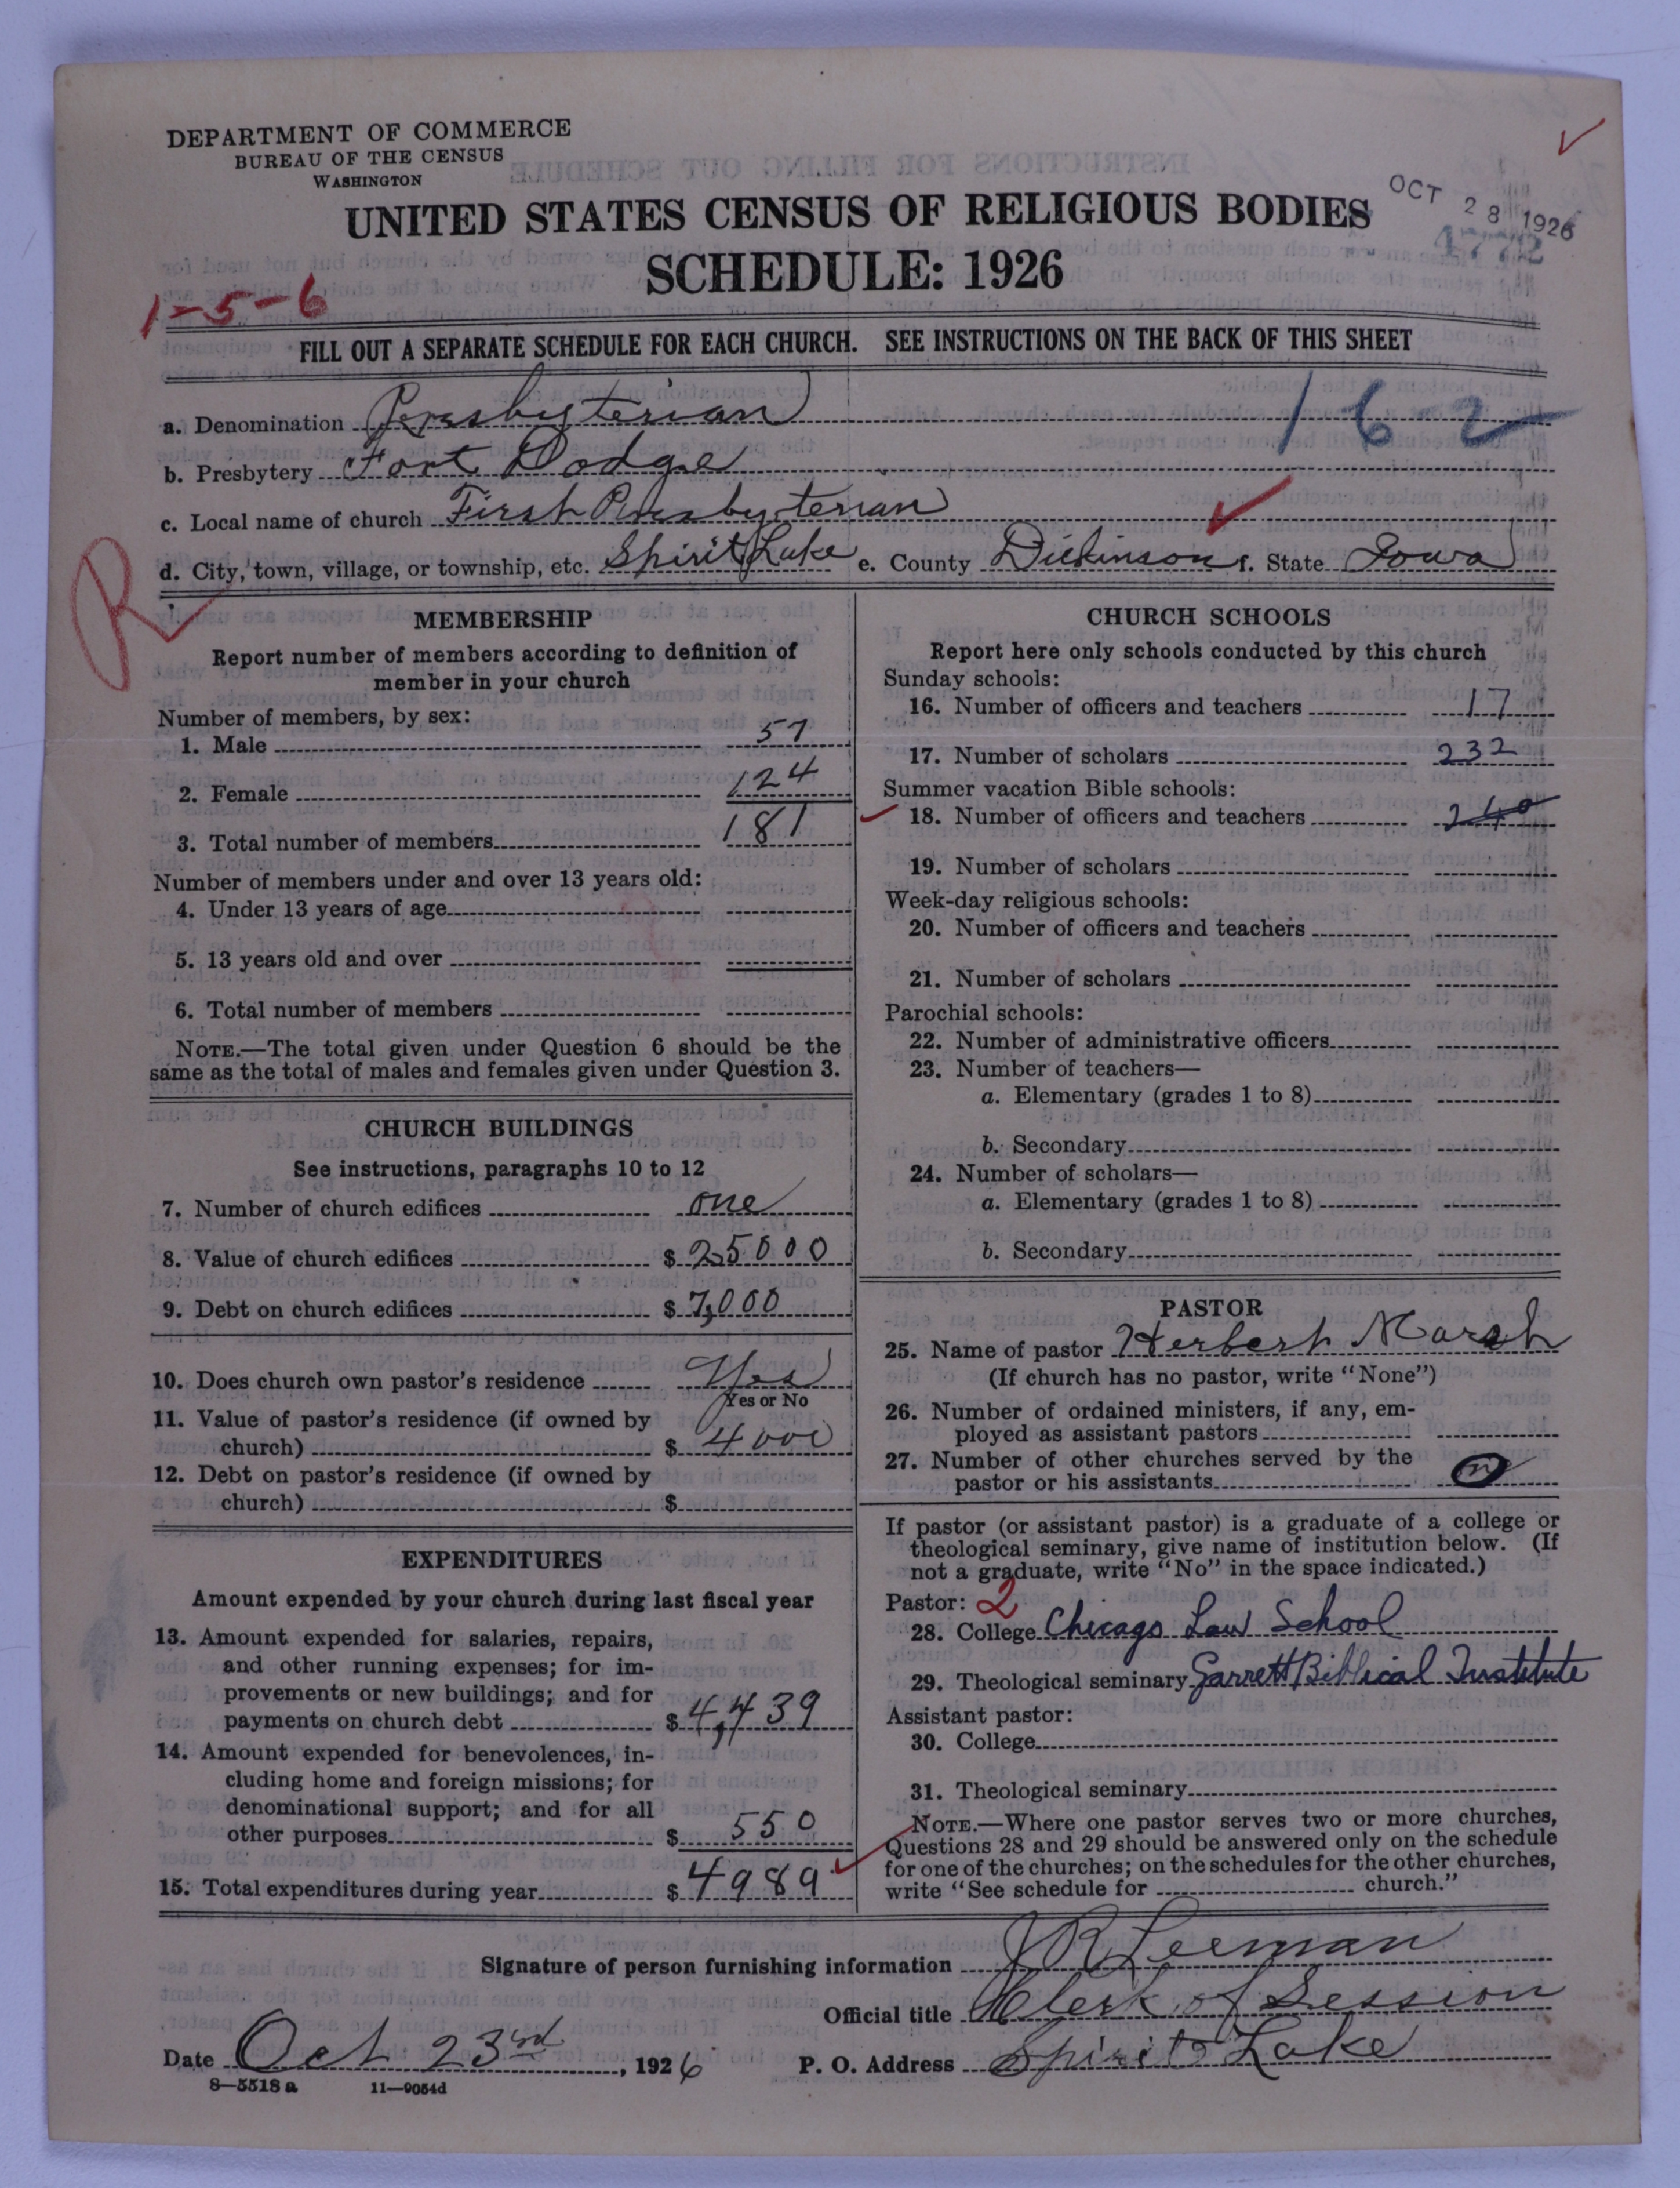 DEPARTMENT OF COMMERCE
BUREAU OF THE CENSUS
WASHINGTON
UNITED STATES CENSUS OF RELIGIOUS BODIES
SCHEDULE: 1926
OCT 28 1926
4772
1-5-6
FILL OUT A SEPARATE SCHEDULE FOR EACH CHURCH. SEE INSTRUCTIONS ON THE BACK OF THIS SHEET
162
a. Denomination Presbyterian
b. Presbytery Fort Dodge
c. Local name of church First Presbyterian
d. City, town, village, or township, etc. Spirit Lake e. County Dickinson f. State Iowa
R
MEMBERSHIP
Report number of members according to definition of
member in your church
Number of members, by sex:
1. Male 57
2. Female 124
3. Total number of members 181
Number of members under and over 13 years old:
4. Under 13 years of age
5. 13 years old and over
6. Total number of members
NOTE.—The total given under Question 6 should be the
same as the total of males and females given under Question 3.
CHURCH BUILDINGS
See instructions, paragraphs 10 to 12
7. Number of church edifices one
8. Value of church edifices $ 25000
9. Debt on church edifices $ 7,000
10. Does church own pastor's residence Yes
Yes or No
11. Value of pastor's residence (if owned by
church) $ 4000
12. Debt on pastor's residence (if owned by
church) $
EXPENDITURES
Amount expended by your church during last fiscal year
13. Amount expended for salaries, repairs,
and other running expenses; for im-
provements or new buildings; and for
payments on church debt $ 4,439
14. Amount expended for benevolences, in-
cluding home and foreign missions; for
denominational support; and for all
other purposes $ 550
15. Total expenditures during year $ 4989
CHURCH SCHOOLS
Report here only schools conducted by this church
Sunday schools:
16. Number of officers and teachers 17
17. Number of scholars 232
Summer vacation Bible schools:
18. Number of officers and teachers 240
19. Number of scholars
Week-day religious schools:
20. Number of officers and teachers
21. Number of scholars
Parochial schools:
22. Number of administrative officers
23. Number of teachers—
a. Elementary (grades 1 to 8)
b. Secondary
24. Number of scholars—
a. Elementary (grades 1 to 8)
b. Secondary
PASTOR
25. Name of pastor Herbert Marsh
(If church has no pastor, write "None")
26. Number of ordained ministers, if any, em-
ployed as assistant pastors
27. Number of other churches served by the
pastor or his assistants
If pastor (or assistant pastor) is a graduate of a college or
theological seminary, give name of institution below. (If
not a graduate, write "No" in the space indicated.)
Pastor: 2
28. College Chicago Law School
29. Theological seminary Garrett Biblical Institute
Assistant pastor:
30. College
31. Theological seminary
NOTE.—Where one pastor serves two or more churches,
Questions 28 and 29 should be answered only on the schedule
for one of the churches; on the schedules for the other churches,
write "See schedule for church."
Signature of person furnishing information J R Leeman
Official title Clerk of Session
Date Oct 23rd, 1926 P. O. Address Spirit Lake
8—5518 a 11—9054d